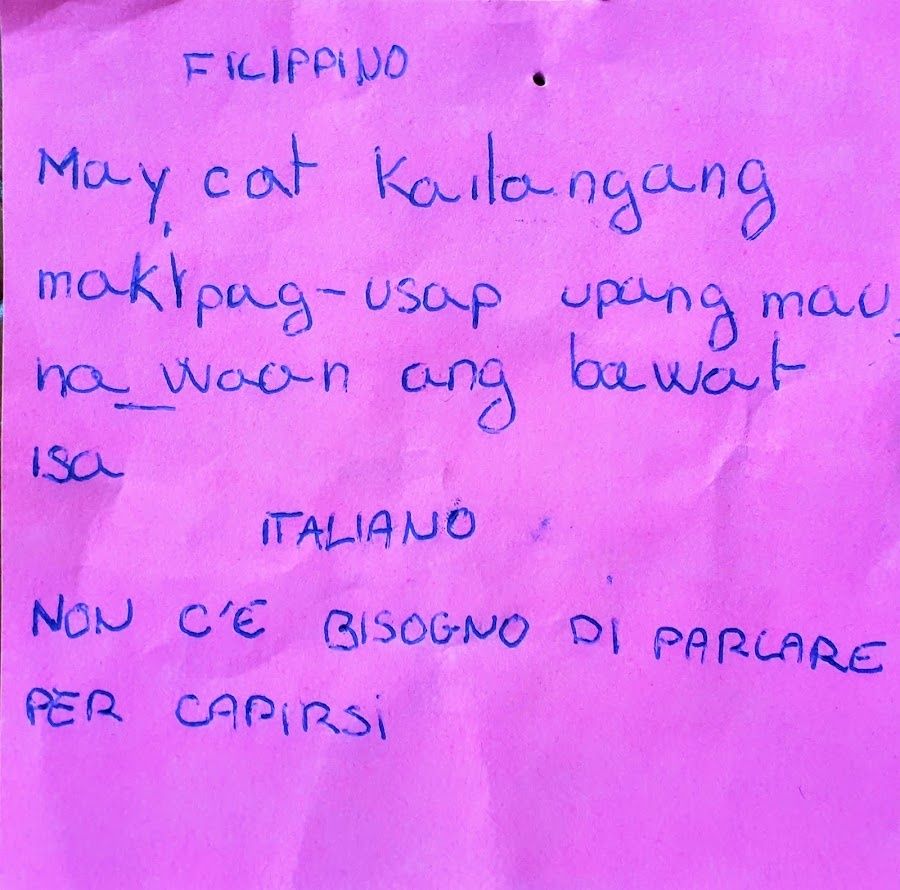 FILIPPINO
May cat kailangang
makipag-usap upang mau
na_waan ang bawat
isa
ITALIANO
NON C'E BISOGNO DI PARLARE
PER CAPIRSI